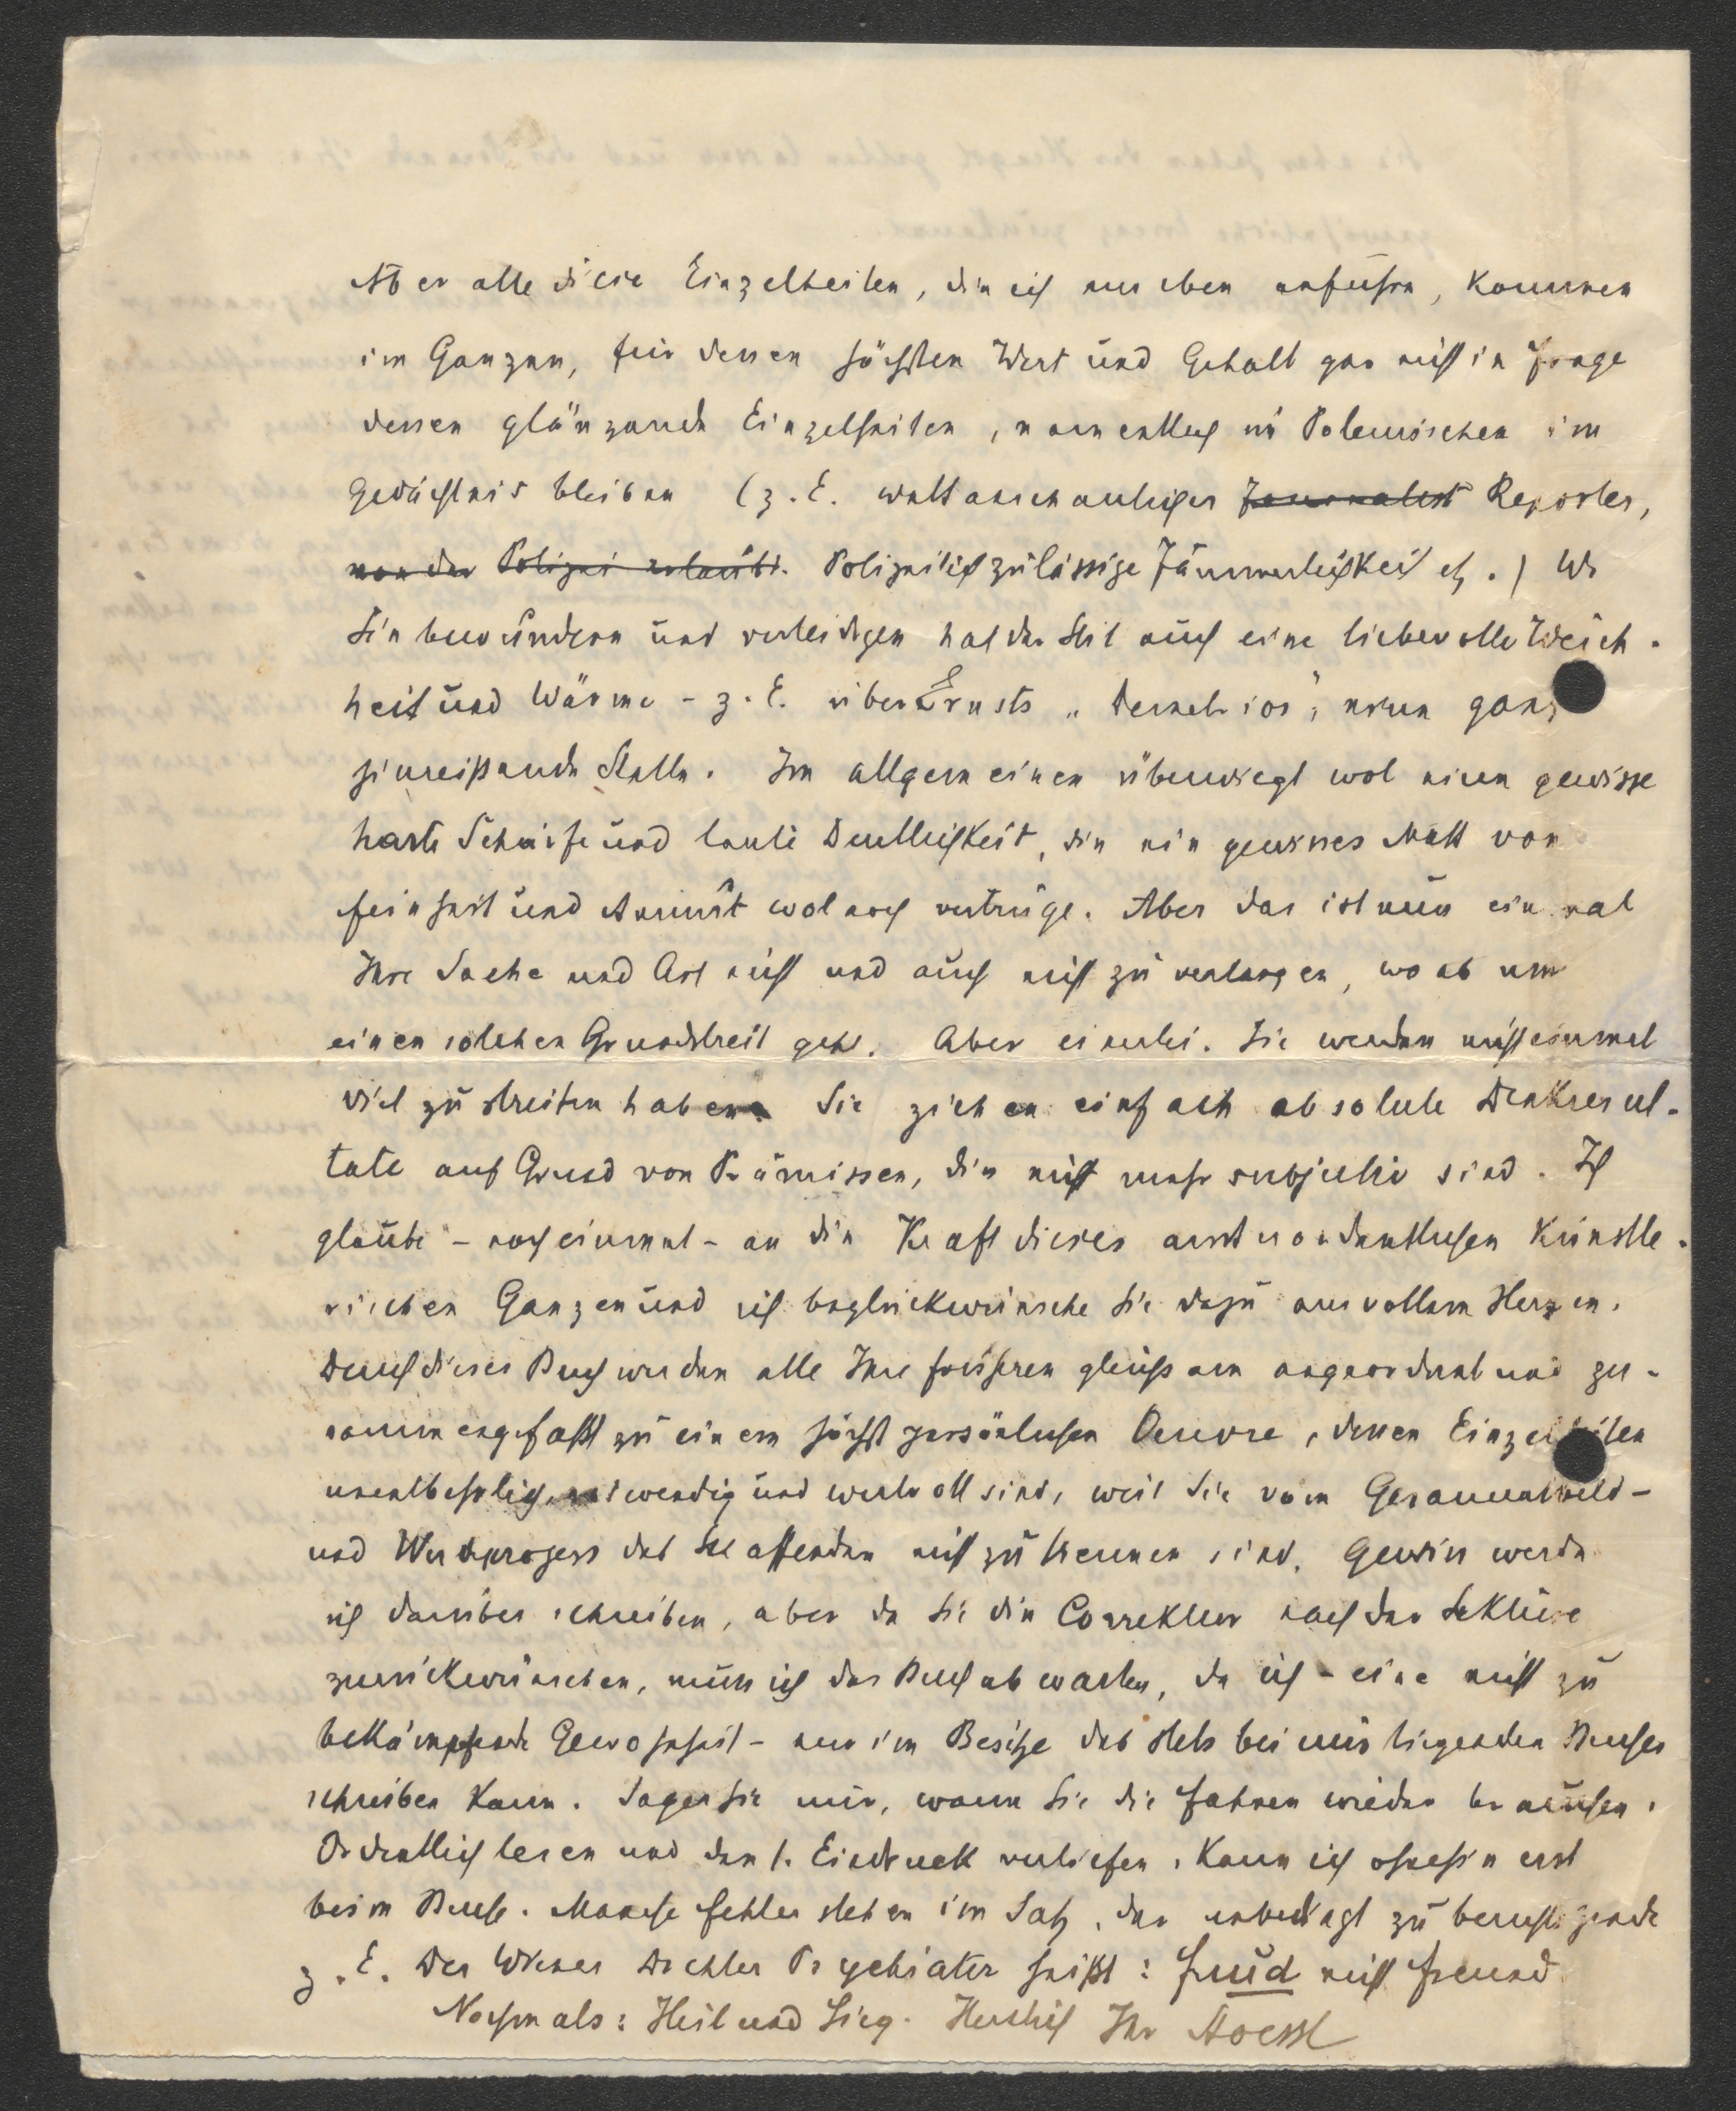 Aber alle diese Einzelheiten, die ich nur eben anführe, kommen
im Ganzen, für dessen höchsten Wert und Gehalt gar nicht in Frage
dessen glänzende Einzelheiten, namentlich im Polemischen im
Gedächtnis bleiben (z. E. weltanschaulicher Journalist Reporter,
von der Polizei erlaubt. Polizeilich zulässige Jämmerlichkeit etz.) Wo
Sie bewundern und verteidigen hat der Stil auch eine liebevolle Weich-
heit und Wärme - z. E. über Ernsts „Demetrios", eine ganz
hinreißende Stelle. Im allgemeinen überwiegt wol eine gewisse
harte Schärfe und laute Deutlichkeit, die ein gewisses Maß von
Feinheit und Anmut wol noch vertrüge. Aber das ist nun einmal
Ihre Sache und Art nicht und auch nicht zu verlangen, wo es um
einen solchen Grundstreit geht. Aber einerlei. Sie werden nicht einmal
viel zu streiten haben. Sie ziehen einfach absolute Denkresul-
tate auf Grund von Prämissen, die nicht mehr subjektiv sind. Ich
glaube - noch einmal - an die Kraft dieses ausserordentlichen künstle-
rischen Ganzen und ich beglückwünsche Sie dazu aus vollem Herzen.
Durch dieses Buch werden alle Ihre früheren gleichsam angeordnet und zu-
sammengefaßt zu einem höchst persönlichen Oeuvre, dessen Einzelheiten
unentbehrlich, notwendig und wertvoll sind, weil sie vom Gesammtbild-
und Werkprozess des Schaffenden nicht zu trennen sind. Gewiss werde
ich darüber schreiben, aber da Sie die Correktur nach der Lektüre
zurückwünschen, muss ich das Buch abwarten, da ich - eine nicht zu
bekämpfende Gewohnheit - nur im Besitze des stets bei mir liegenden Buches
schreiben kann. Sagen Sie mir, wann Sie die Fahnen wieder brauchen.
Ordentlich lesen und den 1. Eindruck vertiefen, kann ich ohnehin erst
beim Buch. Manche Fehler stehen im Satz, der unbedingt zu berichtigende
z. E. Der Wiener Dichter Psychiater heißt: Freud nicht Freund
Nochmals: Heil und Sieg. Herzlich Ihr Stoessl